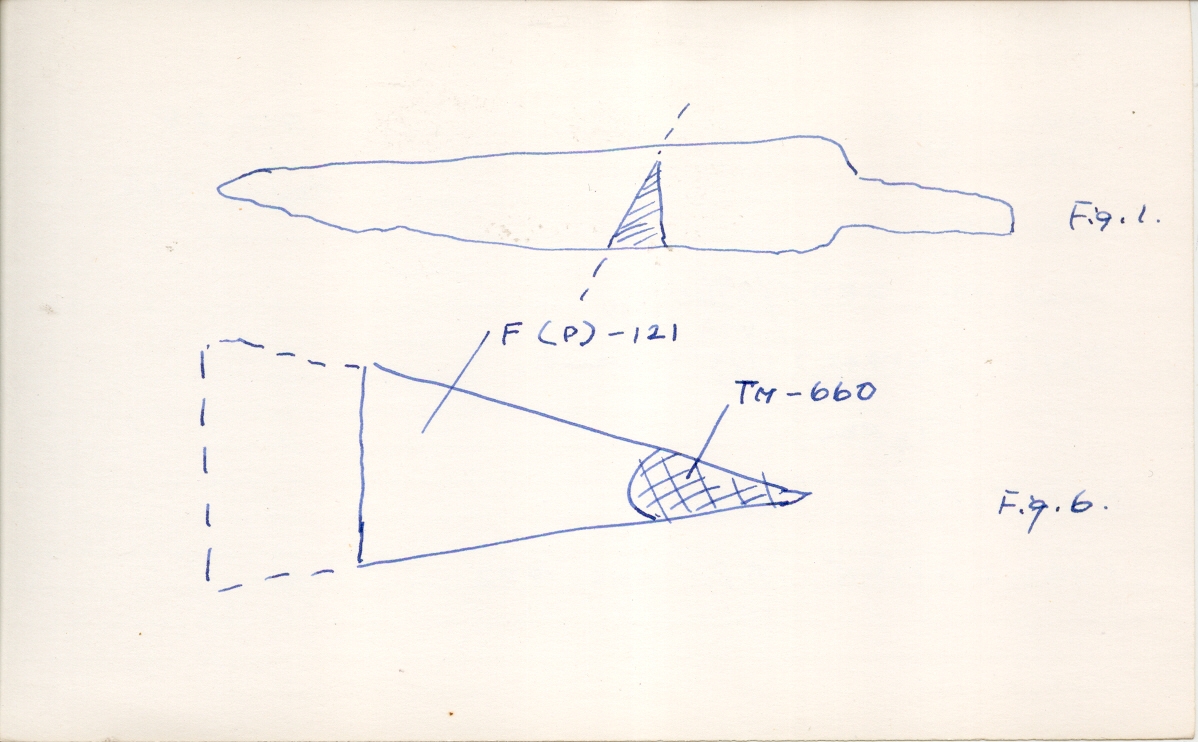 Fig. 1.
F (P) - 121
TM - 660
Fig. 6.